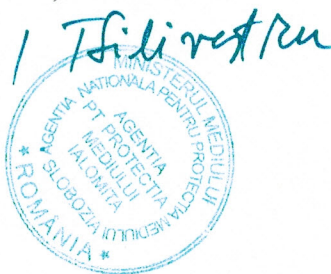 Silivestru
MINISTERUL MEDIULUI
AGENTIA NATIONALA PENTRU PROTECTIA MEDIULUI
AGENTIA
PT PROTECTIA
MEDIULUI
IALOMITA
SLOBOZIA
* ROMÂNIA *